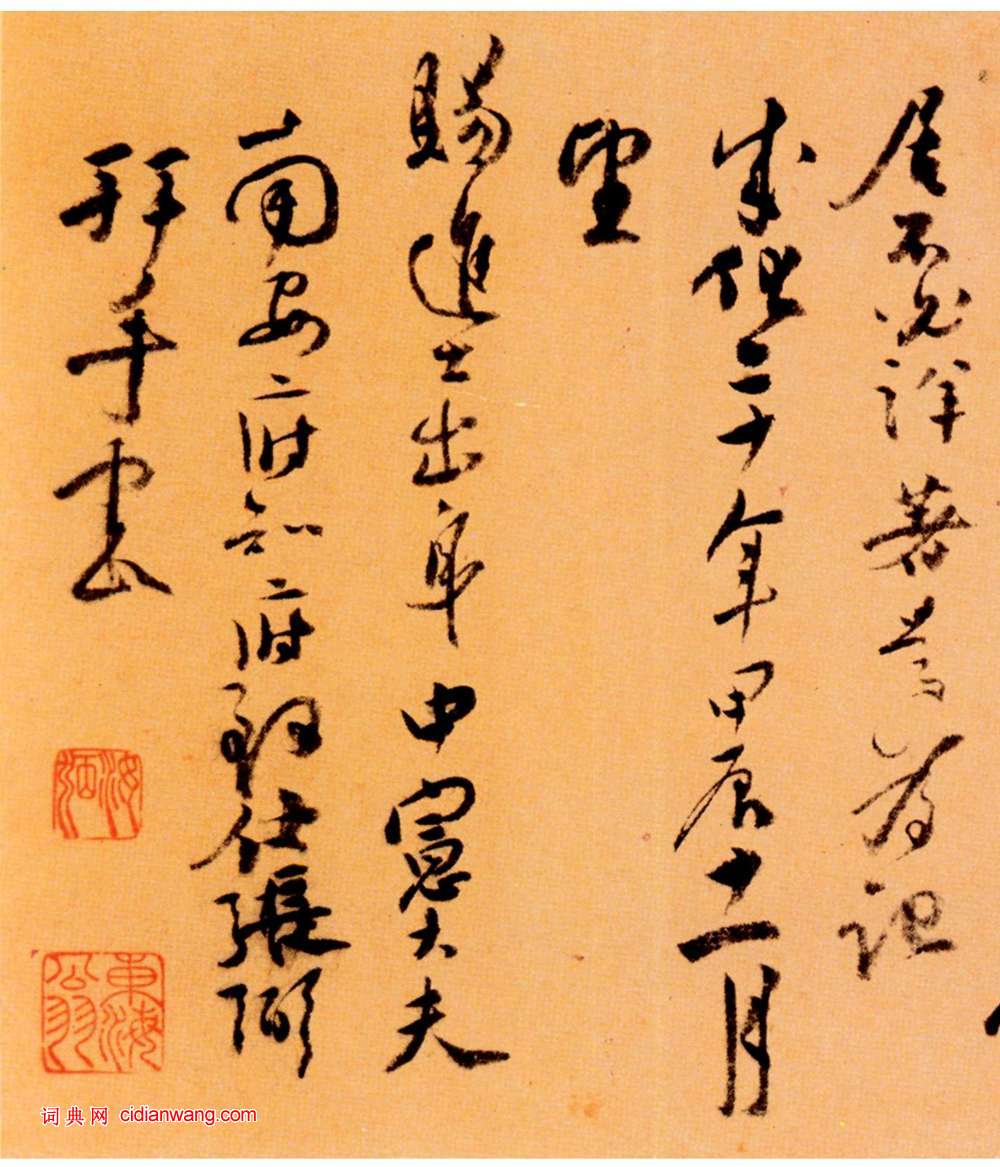 居不詳著為記
成化二十年甲辰十一月
望
賜進士出身中憲大夫
南安府知府致仕張弼
拜手書
汝弼
東海翁
词典网 cidianwang.com